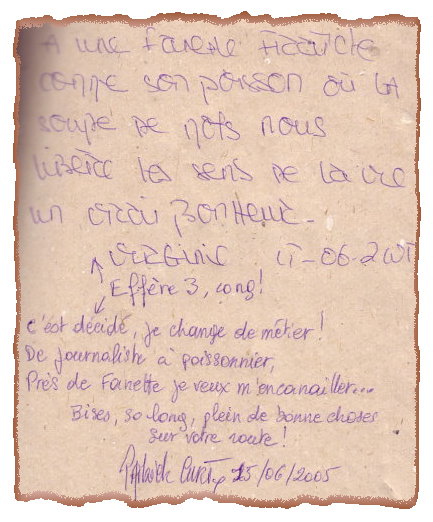 A une Fanette Fraîche
comme son poisson où la
soupe de mots nous
libère les sens de la vie
un vrai bonheur.
Virginie
Effère 3, cong!
c'est décidé, je change de métier!
De journaliste à poissonnier,
Près de Fanette je veux m'encanailler...
Bises, so long, plein de bonne choses
sur votre route!
25/06/2005